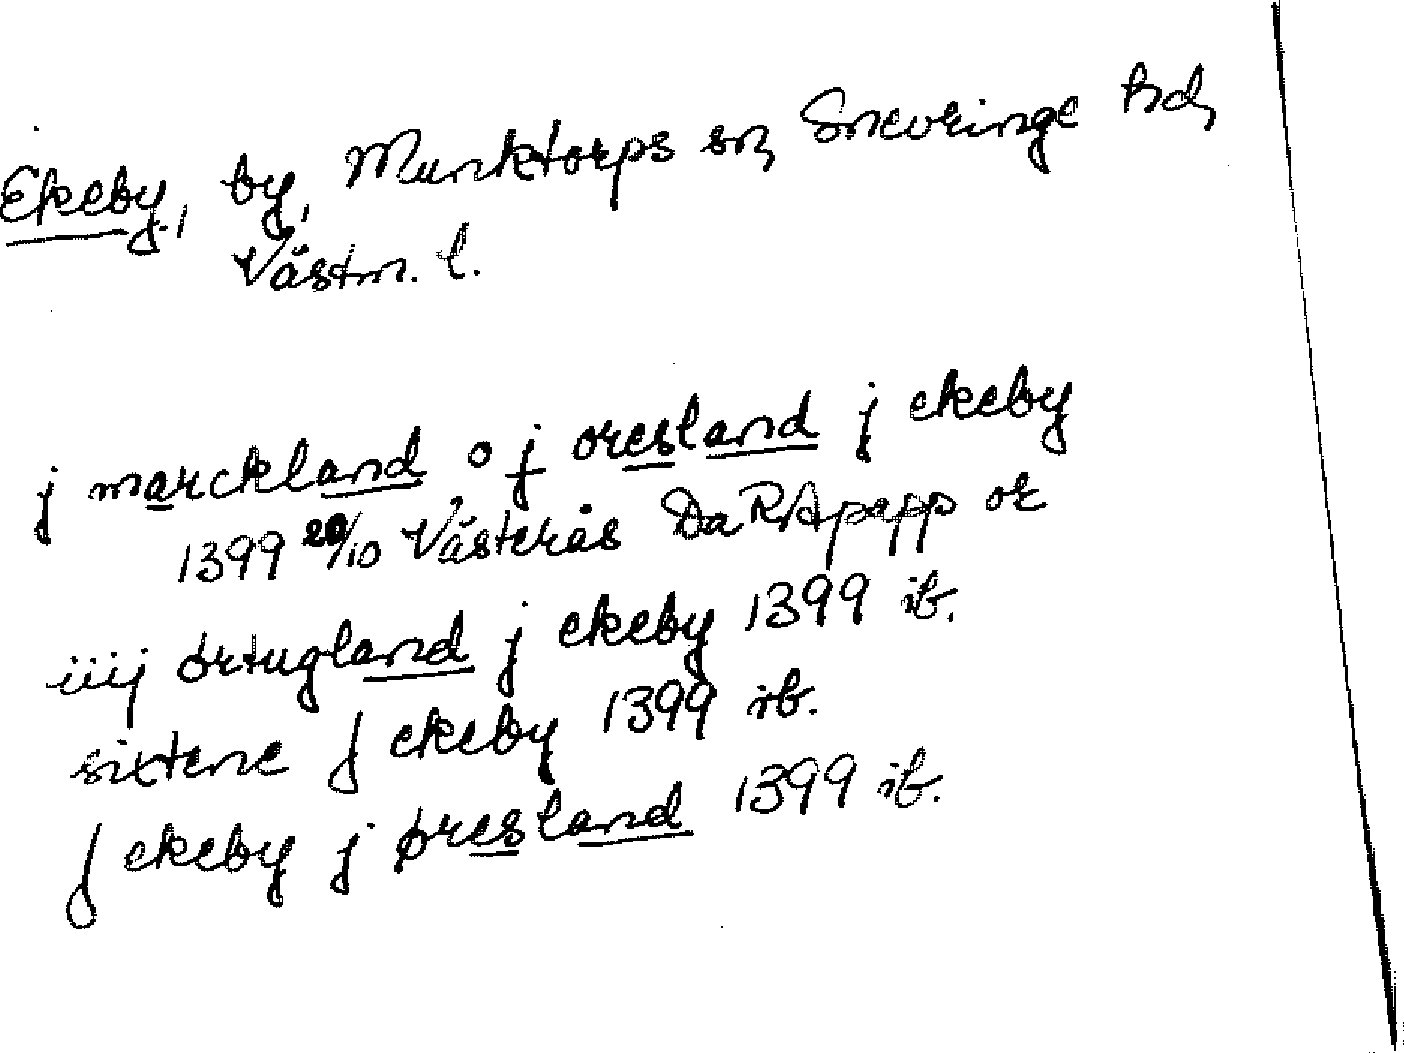 Ekeby, by, Munktorps sn, Snevringe hd,
Västm. l.
j marckland o j oresland j ekeby
1399 20/10 Västerås Da RApapp or
iiij örtugland j ekeby 1399 ib.
sixtene J ekeby 1399 ib.
J ekeby j øresland 1399 ib.